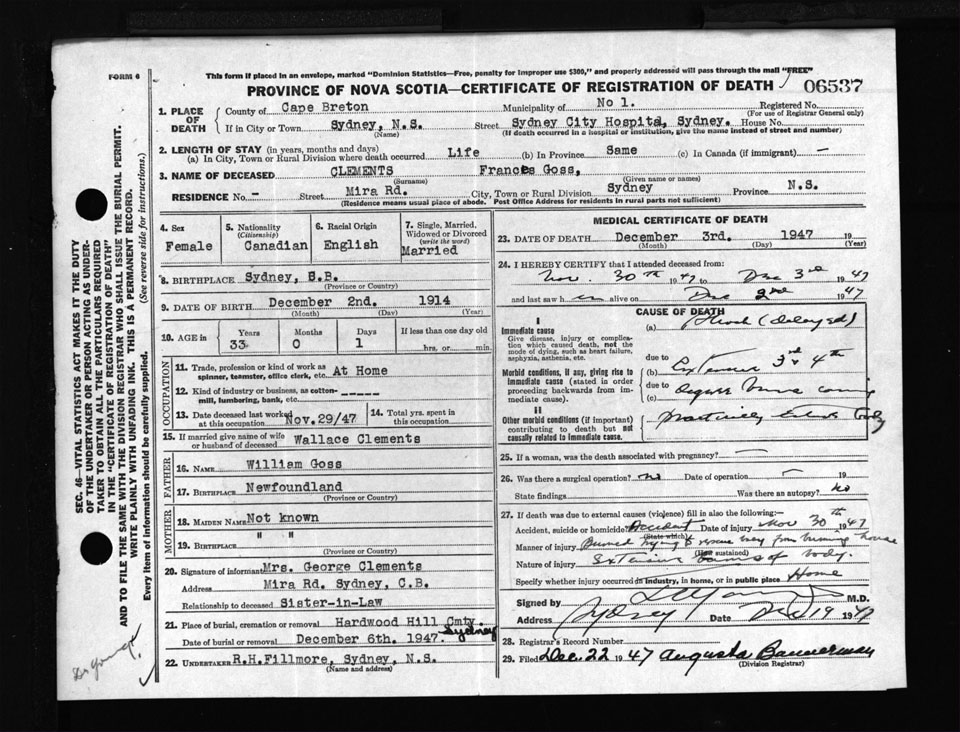 This form if placed in an envelope, marked "Dominion Statistics—Free, penalty for improper use $300," and properly addressed will pass through the mail "FREE"
FORM 6
PROVINCE OF NOVA SCOTIA—CERTIFICATE OF REGISTRATION OF DEATH 06537
1. PLACE OF DEATH
County of Cape Breton Municipality of No 1. Registered No.
(For use of Registrar General only)
If in City or Town Sydney, N.S. Street Sydney City Hospital, Sydney. House No.
(Name) (If death occurred in a hospital or institution, give the name instead of street and number)
2. LENGTH OF STAY (in years, months and days)
(a) In City, Town or Rural Division where death occurred Life (b) In Province Same (c) In Canada (if immigrant) —
3. NAME OF DECEASED CLEMENTS Frances Goss,
(Surname) (Given name or names)
RESIDENCE No. - Street Mira Rd. City, Town or Rural Division Sydney Province N.S.
(Residence means usual place of abode. Post Office Address for residents in rural parts not sufficient)
4. Sex
Female
5. Nationality
(Citizenship)
Canadian
6. Racial Origin
English
7. Single, Married, Widowed or Divorced
(write the word)
Married
8. BIRTHPLACE Sydney, B.B.
(Province or Country)
9. DATE OF BIRTH December 2nd. 1914
(Month) (Day) (Year)
10. AGE in
Years Months Days If less than one day old
33 0 1 hrs. or min.
OCCUPATION
11. Trade, profession or kind of work as spinner, teamster, office clerk, etc. At Home
12. Kind of industry or business, as cotton-mill, lumbering, bank, etc. -----
13. Date deceased last worked at this occupation Nov.29/47
14. Total yrs. spent in this occupation
15. If married give name of wife or husband of deceased Wallace Clements
FATHER
16. NAME William Goss
17. BIRTHPLACE Newfoundland
(Province or Country)
MOTHER
18. MAIDEN NAME Not known
19. BIRTHPLACE " "
(Province or Country)
20. Signature of informant Mrs. George Clements
Address Mira Rd. Sydney, C.B.
Relationship to deceased Sister-in-Law
21. Place of burial, cremation or removal Hardwood Hill Cmty. Sydney
Date of burial or removal December 6th. 1947.
22. UNDERTAKER R.H.Fillmore, Sydney, N.S.
(Name and address)
MEDICAL CERTIFICATE OF DEATH
23. DATE OF DEATH December 3rd. 1947 19
(Month) (Day) (Year)
24. I HEREBY CERTIFY that I attended deceased from:
Nov. 30th 1947 to Dec 3rd 1947
and last saw h er alive on Dec 2nd 1947
CAUSE OF DEATH
I
Immediate cause (a) Shock (delayed)
Give disease, injury or complication which caused death, not the mode of dying, such as heart failure, asphyxia, asthenia, etc.
due to
Morbid conditions, if any, giving rise to immediate cause (stated in order proceeding backwards from immediate cause).
(b) Extensive 3rd & 4th
due to
(c) degree burns covering
II
Other morbid conditions (if important) contributing to death but not causally related to immediate cause.
practically entire body
25. If a woman, was the death associated with pregnancy? —
26. Was there a surgical operation? No Date of operation — 19
State findings Was there an autopsy? No
27. If death was due to external causes (violence) fill in also the following:—
Accident, suicide or homicide? Accident Date of injury Nov 30th 1947
(State which)
Manner of injury Burned trying to rescue boy from burning house
(How sustained)
Nature of injury Extensive burns of body.
Specify whether injury occurred in industry, in home, or in public place Home
Signed by M.D.
Address Sydney Date Dec 19 1947
28. Registrar's Record Number
29. Filed Dec. 22 1947 Augusta Bannerman
(Division Registrar)
SEC. 46—VITAL STATISTICS ACT MAKES IT THE DUTY OF THE UNDERTAKER OR PERSON ACTING AS UNDERTAKER TO OBTAIN ALL THE PARTICULARS REQUIRED IN THE "CERTIFICATE OF REGISTRATION OF DEATH"
AND TO FILE THE SAME WITH THE DIVISION REGISTRAR WHO SHALL ISSUE THE BURIAL PERMIT.
WRITE PLAINLY WITH UNFADING INK. THIS IS A PERMANENT RECORD.
Every item of information should be carefully supplied. (See reverse side for instructions.)